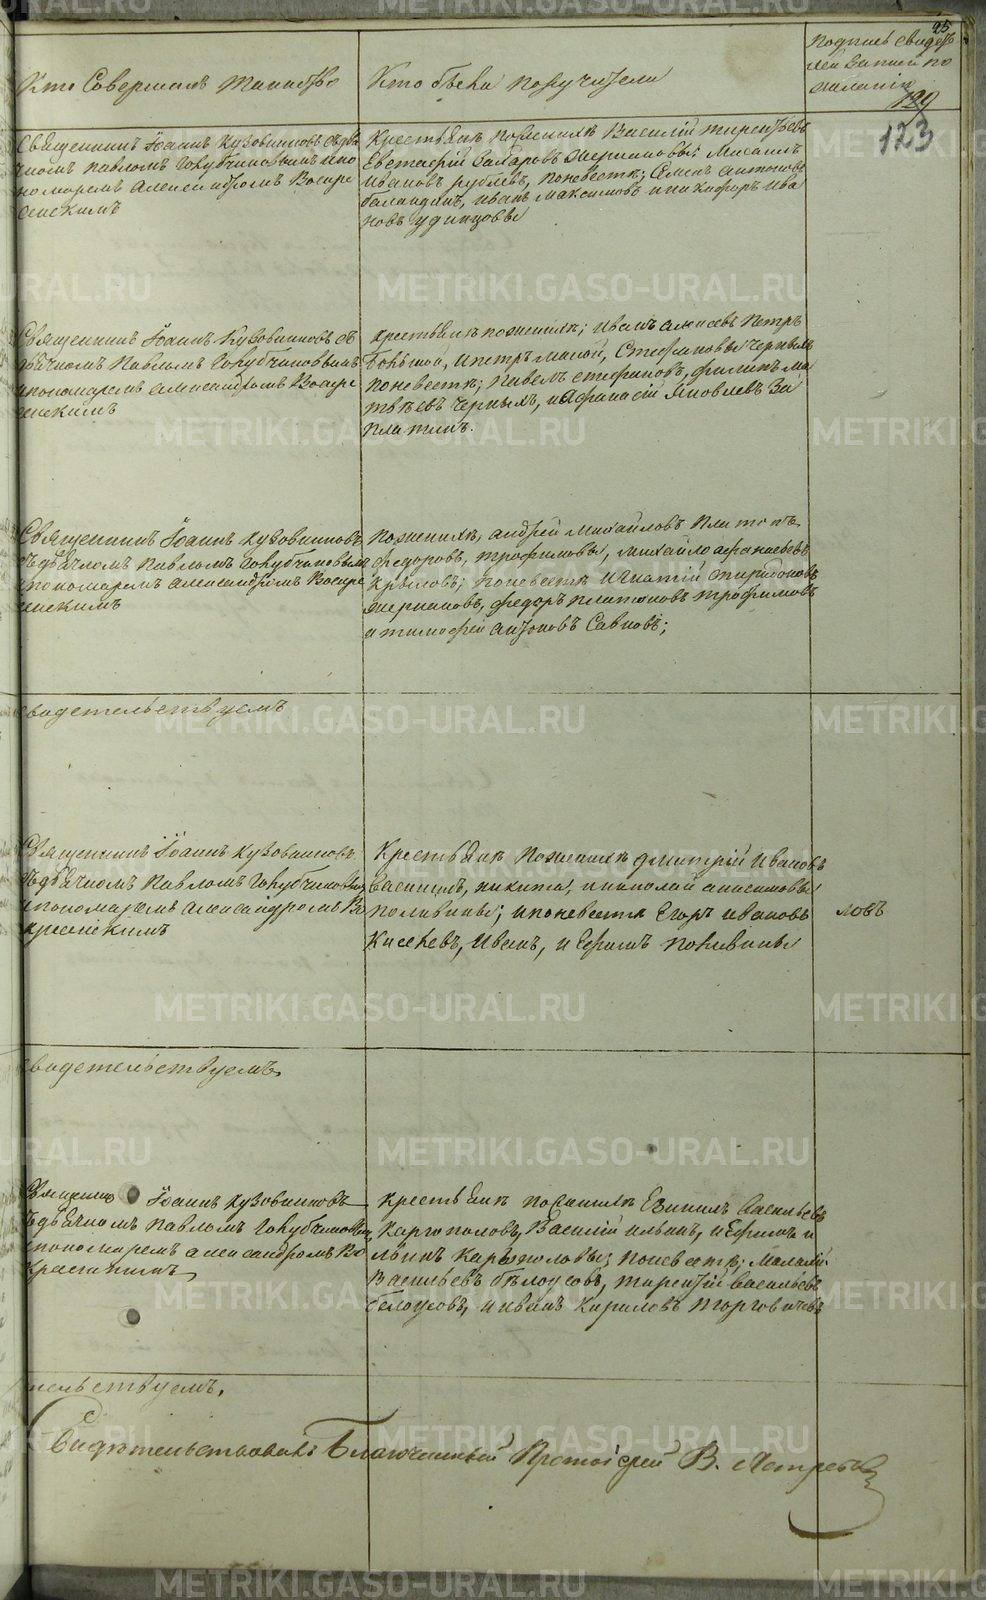 95
Кто Совершалъ таинство
Кто были поручители
Подпись свидете
лей записи по
желанію
129
123
Священникъ Іоаннъ Кузовниковъ съ дья
чкомъ Павломъ Голубчиковымъ и по
номаремъ Александромъ Воскре
сенскимъ
Крестьяне по женихѣ Василій Терентьевъ
Евстафій Захаровъ Михаилъ
Ивановъ Рублевъ, по невестѣ; Семенъ Антоновъ
Баландинъ, Иванъ Максимовъ и Никифоръ Ива
новъ Удинцовы
Священникъ Іоаннъ Кузовниковъ съ
дьячкомъ Павломъ Голубчиковымъ
и пономаремъ Александромъ Воскре
сенскимъ
Крестьяне по женихѣ; Иванъ Алексѣевъ Петръ
большой, и Петръ малой, Стефановы Черныхъ
по невестѣ; Павелъ Стефановъ, Филипъ Ма
твѣевъ Черныхъ, и Афанасій Яковлевъ За
платинъ.
Священникъ Іоаннъ Кузовниковъ
съ дьячкомъ Павломъ Голубчиковымъ
и пономаремъ Александромъ Воскре
сенскимъ
По женихѣ, Андрей Михайловъ Платонъ
Федоровъ, Трофимовы, Михайло Афанасьевъ
Крыловъ; по невестѣ Игнатій Спиридоновъ
Федоръ Платоновъ Трофимовъ
и Тимофей Антоновъ Савковъ;
свидетельствуемъ
Священникъ Іоаннъ Кузовниковъ
съ дьячкомъ Павломъ Голубчиковымъ
и пономаремъ Александромъ Во
кресенскимъ
Крестьяне по женихѣ Дмитрій Ивановъ
Васильевъ, Никита, и Николай Анисимовы
Поливины; и по невестѣ Егоръ Ивановъ
Киселевъ, Иванъ, и Ефимъ Поливины
ловъ
свидетельствуемъ
Священникъ Іоаннъ Кузовниковъ
съ дьячкомъ Павломъ Голубчиковымъ
и пономаремъ Александромъ Во
кресенскимъ
Крестьяне по женихѣ Васильевъ
Каргополовъ, Василій Ильинъ, и Ефимъ И
льинъ Каргополовы; по невестѣ; Малахій
Васильевъ Бѣлоусовъ, Терентій Васильевъ
Белоусовъ, и Иванъ Кириловъ Торговичевъ
тельствуемъ,
Свидѣтельствовалъ Благочинный Протоіерей В. Ястребовъ
METRIKI.GASO-URAL.RU